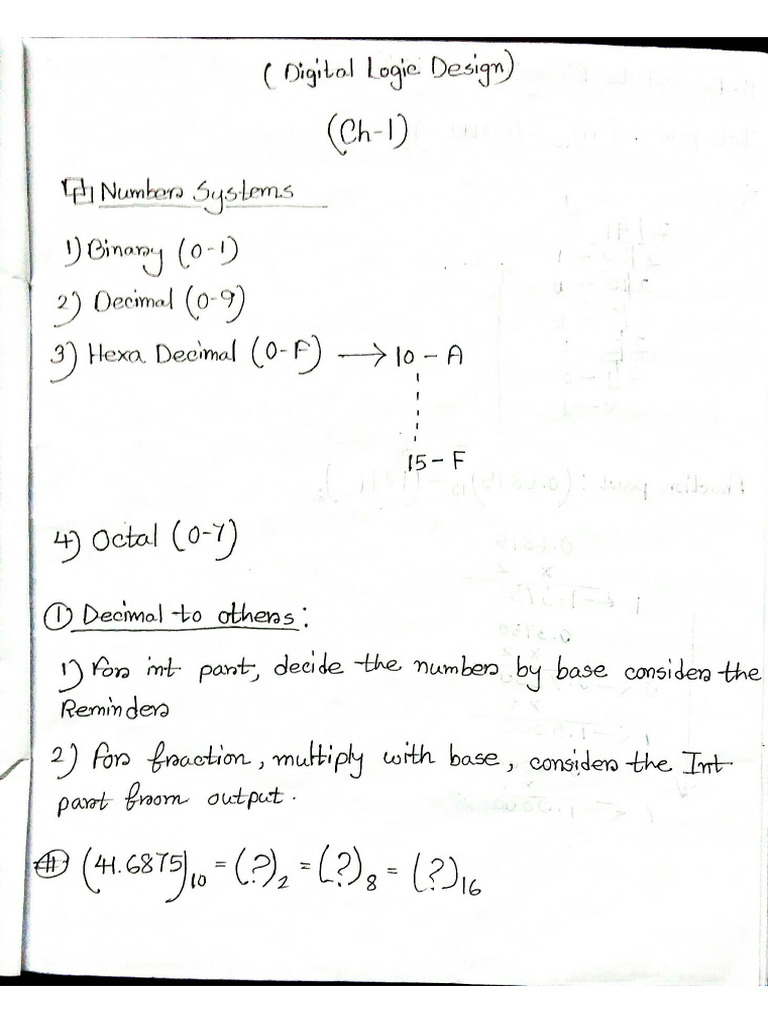 (Digital Logic Design)
(Ch-1)
Number Systems
1) Binary (0-1)
2) Decimal (0-9)
3) Hexa Decimal (0-F) → 10 - A
15 - F
4) Octal (0-7)
① Decimal to others:
1) For int part, decide the number by base consider the
Reminder
2) for fraction, multiply with base, consider the Int
part from output.
# (41.6875)₁₀ = (?)₂ = (?)₈ = (?)₁₆